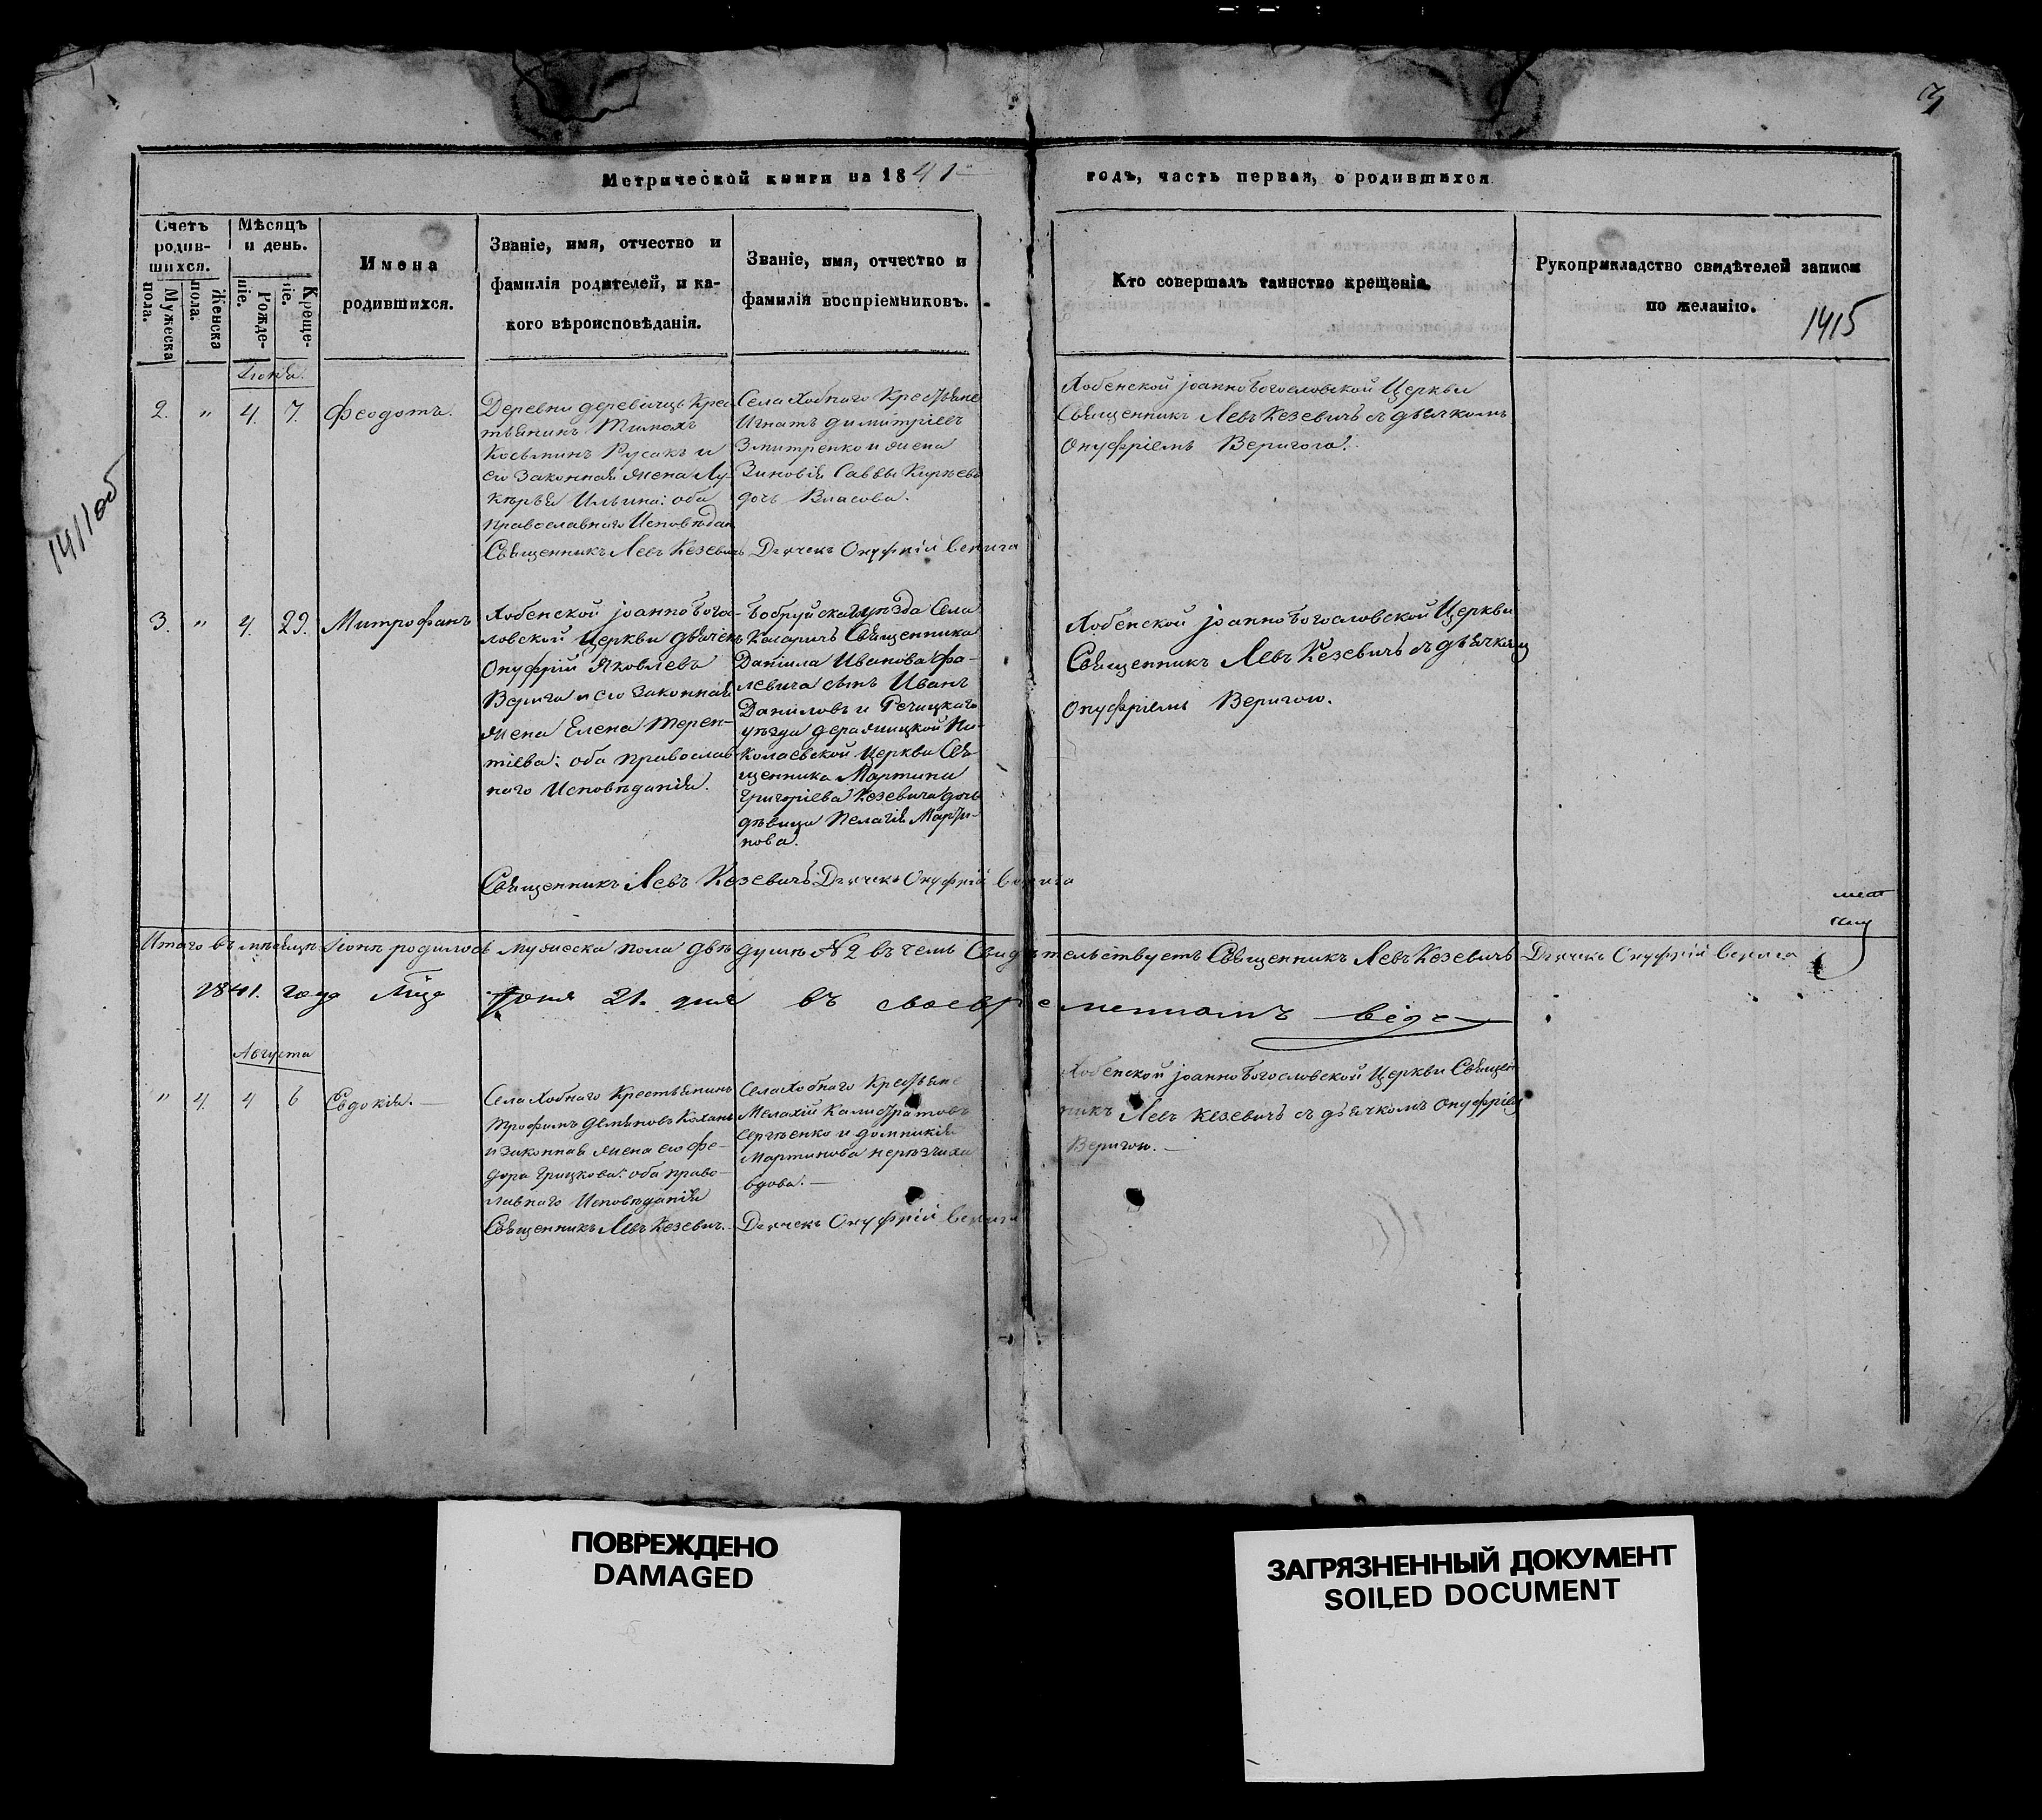 3
Метрической книги на 1841
годъ, часть первая, о родившихся
Счетъ родив-
шихся.
Мужеска
пола.
Женска
пола.
Мѣсяцъ
и день.
Рожде-
ніе.
Креще-
ніе.
Имена
родившихся.
Званіе, имя, отчество и
фамилія родителей, и ка-
кого вѣроисповѣданія.
Званіе, имя, отчество и
фамилія воспріемниковъ.
Кто совершалъ таинство крещенія.
Рукоприкладство свидѣтелей записи
по желанію.
1415
1411 об
Іюня.
2. " 4. 7. Феодотъ.
Деревни Крес
тьянинъ Тимохъ
Косьминъ Русакъ и
его законная жена Лу-
керья Ильина: оба
православнаго Исповѣдан
Священникъ Левъ Кезевичъ
Села Хобнаго Крестьяне
Игнатъ Димитріевъ
Змитренко и жена
Зиновія Саввы Кирѣева
дочь Власова.
Дьячекъ Онуфрій Верига
Хобенской Іоанно Богословской Церкви
Священникъ Левъ Кезевичъ съ дьячкомъ
Онуфріемъ Веригого.
3. " 4. 29. Митрофанъ
Хобенской Іоанно Богос-
ловской Церкви дьячекъ
Онуфрій Яковлевъ
Верига и его законная
жена Елена Терен-
тіева: оба православ
наго Исповѣданія.
Бобруйскагоуѣзда Села
Священника
Даніила Иванова Фа-
левича сынъ Иванъ
Даниловъ и Речицкаго
уѣзда Деражицкой Ни-
колаевской Церкви Свя-
щенника Мартина
Григоріева Кезевича дочь
дѣвица Пелагія Марти-
нова.
Хобенской Іоанно Богословской Церкви
Священникъ Левъ Кезевичъ съ дьячкомъ
Онуфріемъ Веригою.
Священникъ Левъ Кезевичъ. Дьячекъ Онуфрій Верига
Итого въ мѣсяцѣ Іюнѣ родилось мужеска пола двѣ душѣ № 2 въ чемъ Свидѣтельствуетъ Священникъ Левъ Кезевичъ Дьячекъ Онуфрій Верига
1841. года Мца Іюня 21. дня въ своевременномъ
Августа
" 4. 4 6 Евдокія.
Села Хобнаго Крестьянинъ
Трофимъ Демьяновъ Коханъ
и законная жена его Фе-
дора Грицкова: оба право-
славнаго Исповѣданія
Священникъ Левъ Кезевич.
Села Хобнаго Крестьяне
Мелахій Калистратовъ
Сергѣенко и Домникія
Мартинова
вдова.
Дьячекъ Онуфрій Верига
Хобенской Іоанно Богословской Церкви Священ
никъ Левъ Кезевичъ съ дьячкомъ Онуфріем
Веригою.
ПОВРЕЖДЕНО
DAMAGED
ЗАГРЯЗНЕННЫЙ ДОКУМЕНТ
SOILED DOCUMENT